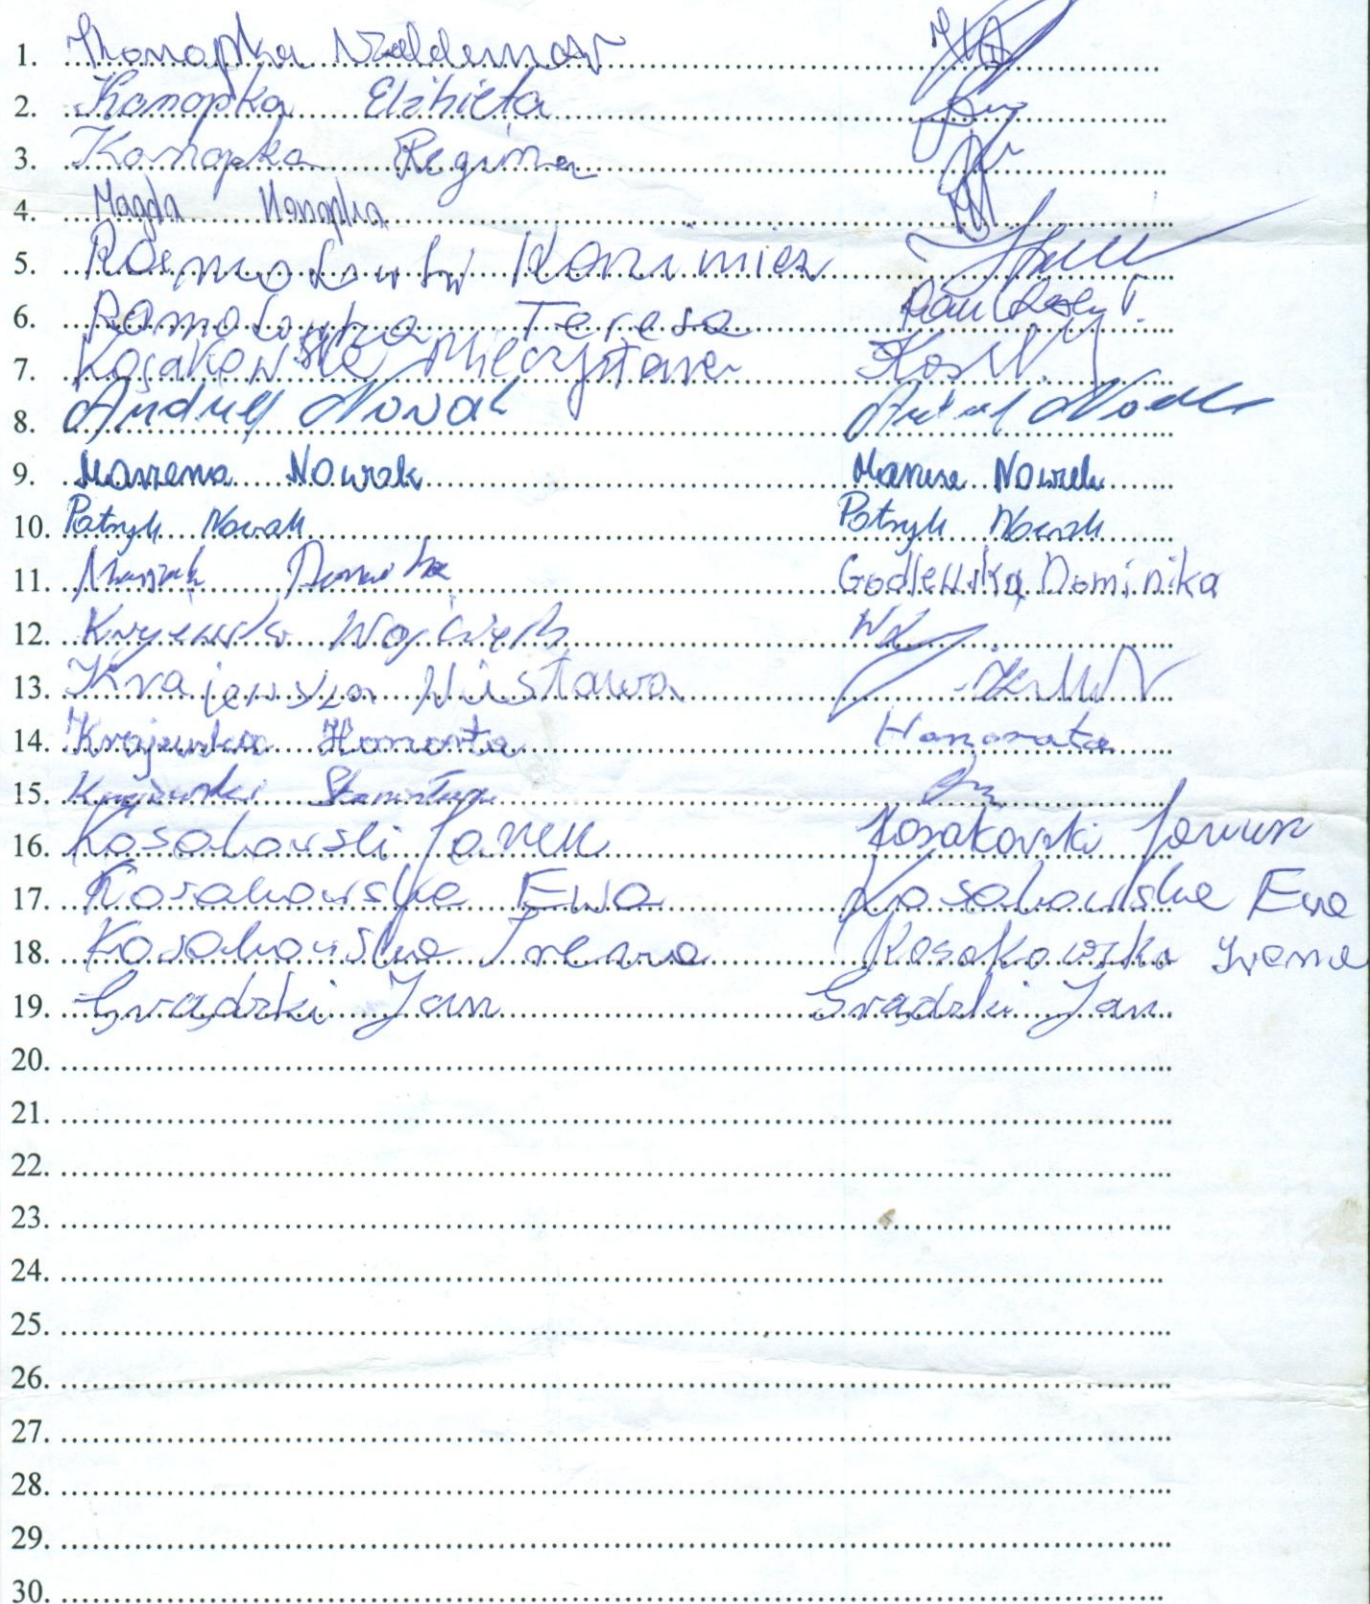 1. Konopka Waldemar
2. Konopka Elżbieta
3. Konopka Regina
4. Magda Konopka
5. Kazimierz
6. Ramotowska Teresa
7. Kosakowska Mieczysława
8. Andrzej Nowak
9. Marzena Nowak Nowak
10. Patryk Nowak Patryk Nowak
11. Godlewska Dominika
12. Wojciech
13. Krajewska Wiesława
14. Krajewska Honorata Honorata
15. Krajewski Stanisław
16. Kosakowski Kosakowski Janusz
17. Kosakowska Ewa Kosakowska Ewa
18. Kosakowska Irena Kosakowska Irena
19. Grądzki Jan Grądzki Jan
20.
21.
22.
23.
24.
25.
26.
27.
28.
29.
30.